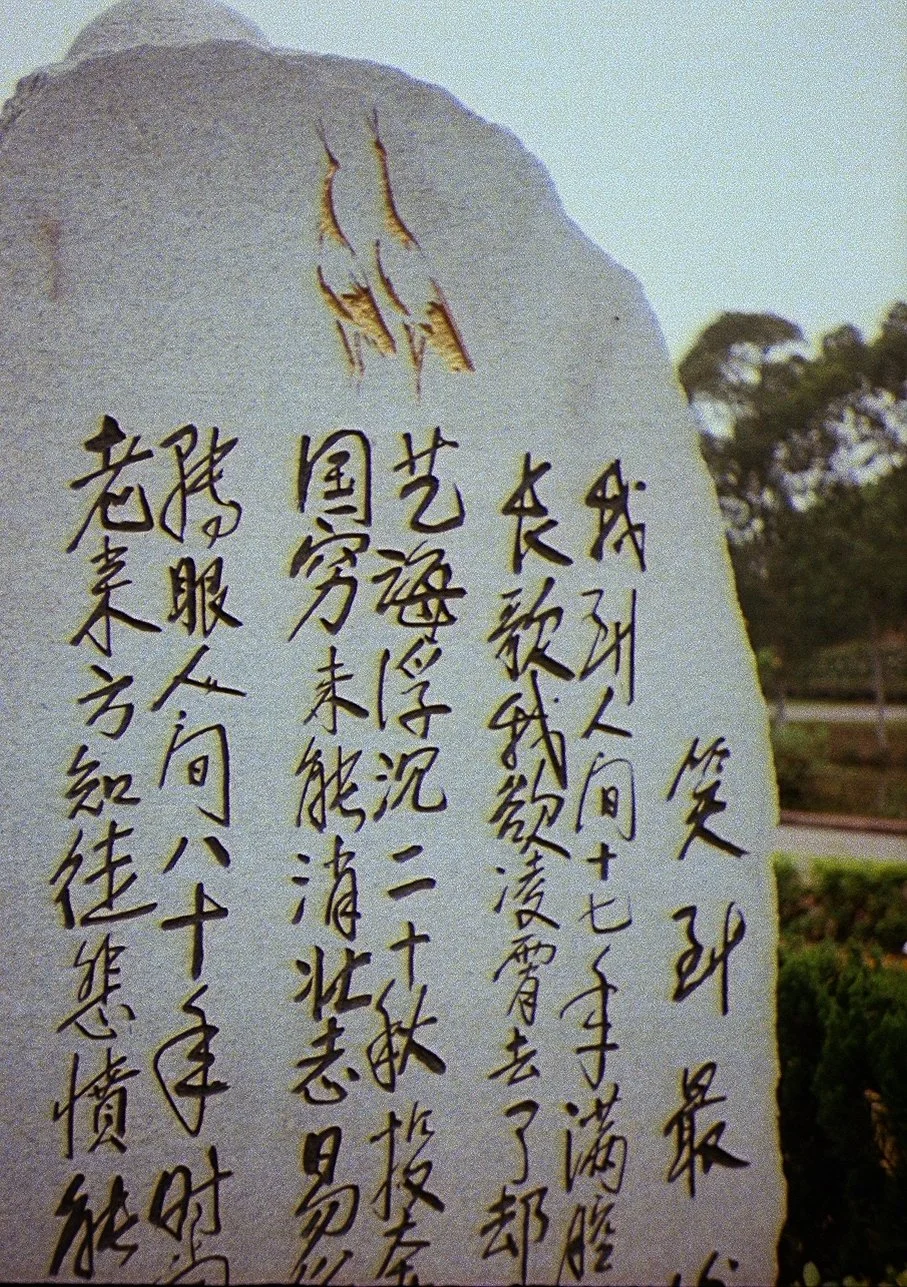 笑到最
我到人间十七年满腔
长歌我欲凌霄去了却
艺海浮沉二十秋投
国穷未能消壮志易
眼人间八十年时
老来方知徒悲愤能